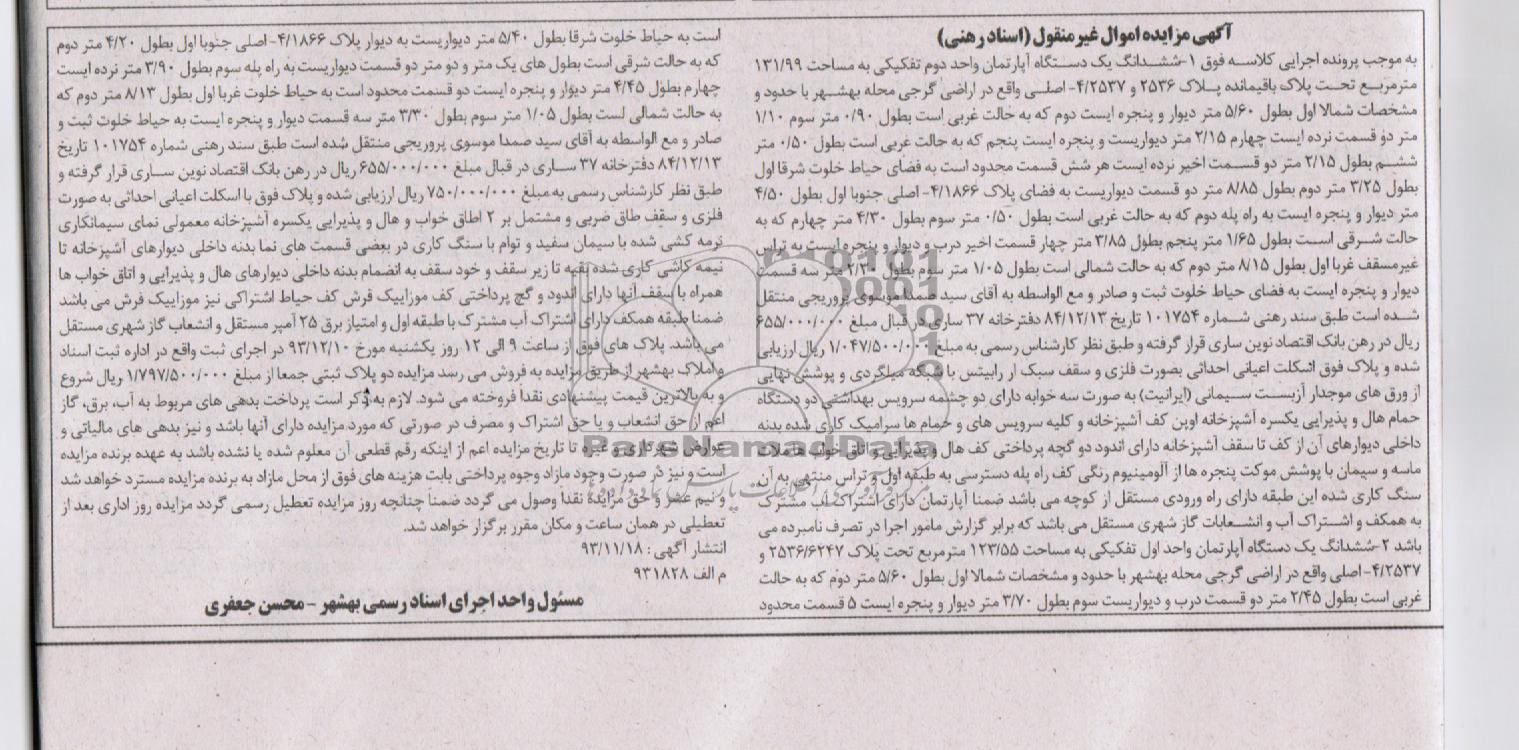 آگهی مزایده اموال غیر منقول (اسناد رهنی)
به موجب پرونده اجرایی کلاسه فوق ۱-ششدانگ یک دستگاه آپارتمان واحد دوم تفکیکی به مساحت ۱۳۱/۹۹
مترمربع تحت پلاک باقیمانده پلاک ۲۵۳۶ و ۴/۲۵۳۷- اصلی واقع در اراضی گرجی محله بهشهر با حدود و
مشخصات شمالا اول بطول ۵/۶۰ متر دیوار و پنجره ایست دوم که به حالت غربی است بطول ۰/۹۰ متر سوم ۱/۱۰
متر دو قسمت نرده ایست چهارم ۲/۱۵ متر دیواریست و پنجره ایست پنجم که به حالت غربی است بطول ۰/۵۰ متر
ششم بطول ۲/۱۵ متر دو قسمت اخیر نرده ایست هر شش قسمت محدود است به فضای حیاط خلوت شرقا اول
بطول ۳/۲۵ متر دوم بطول ۸/۸۵ متر دو قسمت دیواریست به فضای پلاک ۴/۱۸۶۶- اصلی جنوبا اول بطول ۴/۵۰
متر دیوار و پنجره ایست به راه پله دوم که به حالت غربی است بطول ۰/۵۰ متر سوم بطول ۴/۳۰ متر چهارم که به
حالت شرقی است بطول ۱/۶۵ متر پنجم بطول ۳/۸۵ متر چهار قسمت اخیر درب و دیوار و پنجره ایست به تراس
غیرمسقف غربا اول بطول ۸/۱۵ متر دوم که به حالت شمالی است بطول ۱/۰۵ متر سوم بطول ۲/۳۰ متر سه قسمت
دیوار و پنجره ایست به فضای حیاط خلوت ثبت و صادر و مع الواسطه به آقای سید صمدا موسوی پروریجی منتقل
شده است طبق سند رهنی شماره ۱۰۱۷۵۴ تاریخ ۸۴/۱۲/۱۳ دفترخانه ۳۷ ساری در قبال مبلغ ۶۵۵/۰۰۰/۰۰۰
ریال در رهن بانک اقتصاد نوین ساری قرار گرفته و طبق نظر کارشناس رسمی به مبلغ ۱/۰۴۷/۵۰۰/۰۰۰ ریال ارزیابی
شده و پلاک فوق اسکلت اعیانی احداثی بصورت فلزی و سقف سبک از رابیتس با شبکه میلگردی و پوشش نهایی
از ورق های موجدار آزبست سیمانی (ایرانیت) به صورت سه خوابه دارای دو چشمه سرویس بهداشتی دو دستگاه
حمام هال و پذیرایی یکسره آشپزخانه اوپن کف آشپزخانه و کلیه سرویس های و حمام ها سرامیک کاری شده بدنه
داخلی دیوارهای آن از کف تا سقف آشپزخانه دارای اندود دو گچه پرداختی کف هال و پذیرایی و اتاق خواب ها ملات
ماسه و سیمان با پوشش موکت پنجره ها از آلومینیوم رنگی کف راه پله دسترسی به طبقه اول و تراس منتهی به آن
سنگ کاری شده این طبقه دارای راه ورودی مستقل از کوچه می باشد ضمنا آپارتمان دارای اشتراک آب مشترک
به همکف و اشتراک آب و انشعابات گاز شهری مستقل می باشد که برابر گزارش مامور اجرا در تصرف نامبرده می
باشد ۲-ششدانگ یک دستگاه آپارتمان واحد اول تفکیکی به مساحت ۱۲۳/۵۵ مترمربع تحت پلاک ۲۵۳۶/۶۲۴۷ و
۴/۲۵۳۷- اصلی واقع در اراضی گرجی محله بهشهر با حدود و مشخصات شمالا اول بطول ۵/۶۰ متر دوم که به حالت
غربی است بطول ۲/۴۵ متر دو قسمت درب و دیواریست سوم بطول ۳/۷۰ متر دیوار و پنجره ایست ۵ قسمت محدود
است به حیاط خلوت شرقا بطول ۵/۴۰ متر دیواریست به دیوار پلاک ۴/۱۸۶۶- اصلی جنوبا اول بطول ۴/۲۰ متر دوم
که به حالت شرقی است بطول های یک متر و دو متر دو قسمت دیواریست به راه پله سوم بطول ۳/۹۰ متر نرده ایست
چهارم بطول ۴/۴۵ متر دیوار و پنجره ایست دو قسمت محدود است به حیاط خلوت غربا اول بطول ۸/۱۳ متر دوم که
به حالت شمالی است بطول ۱/۰۵ متر سوم بطول ۳/۳۰ متر سه قسمت دیوار و پنجره ایست به حیاط خلوت ثبت و
صادر و مع الواسطه به آقای سید صمدا موسوی پروریجی منتقل شده است طبق سند رهنی شماره ۱۰۱۷۵۴ تاریخ
۸۴/۱۲/۱۳ دفترخانه ۳۷ ساری در قبال مبلغ ۶۵۵/۰۰۰/۰۰۰ ریال در رهن بانک اقتصاد نوین ساری قرار گرفته و
طبق نظر کارشناس رسمی به مبلغ ۷۵۰/۰۰۰/۰۰۰ ریال ارزیابی شده و پلاک فوق با اسکلت اعیانی احداثی به صورت
فلزی و سقف طاق ضربی و مشتمل بر ۲ اطاق خواب و هال و پذیرایی یکسره آشپزخانه معمولی نمای سیمانکاری
نرمه کشی شده با سیمان سفید و توام با سنگ کاری در بعضی قسمت های نما بدنه داخلی دیوارهای آشپزخانه تا
نیمه کاشی کاری شده بقیه تا زیر سقف و خود سقف به انضمام بدنه داخلی دیوارهای هال و پذیرایی و اتاق خواب ها
همراه با سقف آنها دارای اندود و گچ پرداختی کف موزاییک فرش کف حیاط اشتراکی نیز موزاییک فرش می باشد
ضمنا طبقه همکف دارای اشتراک آب مشترک با طبقه اول و امتیاز برق ۲۵ آمپر مستقل و انشعاب گاز شهری مستقل
می باشد. پلاک های فوق از ساعت ۹ الی ۱۲ روز یکشنبه مورخ ۹۳/۱۲/۱۰ در اجرای ثبت واقع در اداره ثبت اسناد
و املاک بهشهر از طریق مزایده به فروش می رسد مزایده دو پلاک ثبتی جمعا از مبلغ ۱/۷۹۷/۵۰۰/۰۰۰ ریال شروع
و به بالاترین قیمت پیشنهادی نقدا فروخته می شود. لازم به ذکر است پرداخت بدهی های مربوط به آب، برق، گاز
اعم از حق انشعاب و یا حق اشتراک و مصرف در صورتی که مورد مزایده دارای آنها باشد و نیز بدهی های مالیاتی و
عوارض شهرداری و غیره تا تاریخ مزایده اعم از اینکه رقم قطعی آن معلوم شده یا نشده باشد به عهده برنده مزایده
است و نیز در صورت وجود مازاد وجوه پرداختی بابت هزینه های فوق از محل مازاد به برنده مزایده مسترد خواهد شد
و نیم عشر و حق مزایده نقدا وصول می گردد ضمنا چنانچه روز مزایده تعطیل رسمی گردد مزایده روز اداری بعد از
تعطیلی در همان ساعت و مکان مقرر برگزار خواهد شد.
انتشار آگهی : ۹۳/۱۱/۱۸
م الف ۹۳۱۸۲۸
مسئول واحد اجرای اسناد رسمی بهشهر - محسن جعفری
ParsNamadData